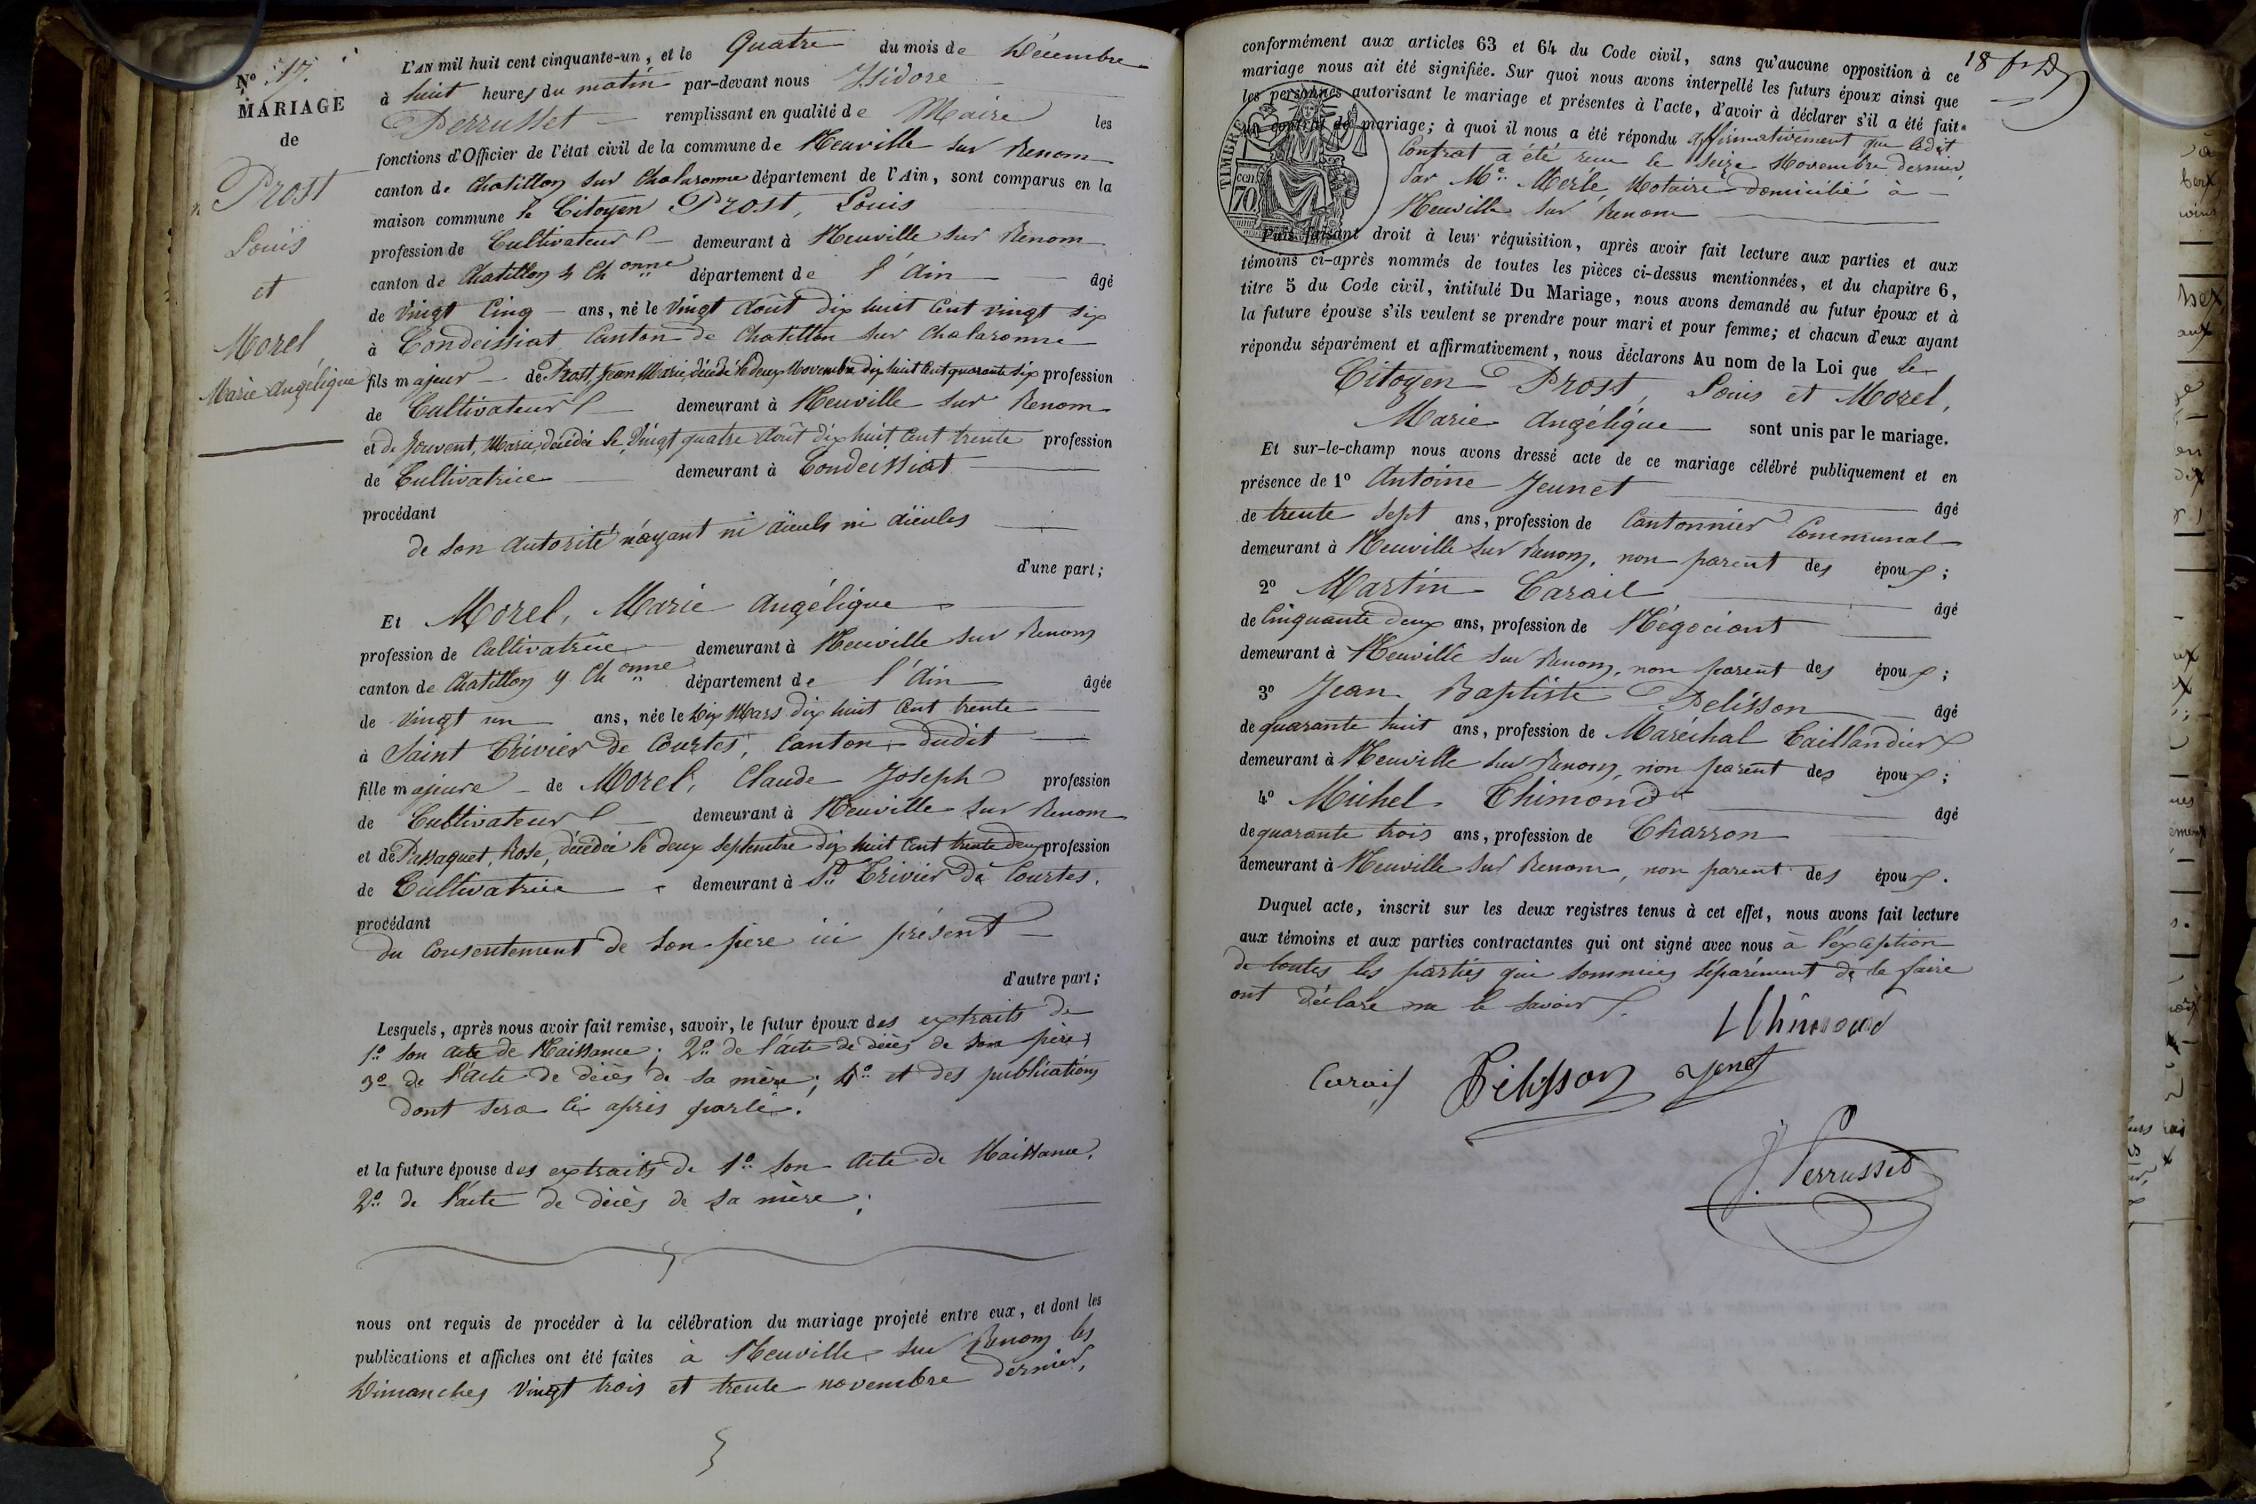 N° 17.
MARIAGE
de
Prost
Louis
et
Morel
Marie Angélique
L'AN mil huit cent cinquante-un, et le Quatre du mois de Décembre
à huit heures du matin par-devant nous Isidore
Perrusset remplissant en qualité de Maire les
fonctions d'Officier de l'état civil de la commune de Neuville sur Renom
canton de Chatillon sur Chalaronne département de l'Ain, sont comparus en la
maison commune le Citoyen Prost, Louis
profession de Cultivateur demeurant à Neuville sur Renom
canton de Chatillon s Chonne département de l'Ain âgé
de vingt cinq ans, né le vingt Août dix huit Cent vingt six
à Condeissiat Canton de Chatillon sur Chalaronne
fils majeur de Prost, Jean Marie, décédé le deux Novembre dix huit Cent quarante six profession
de Cultivateur demeurant à Neuville sur Renom
et de Jouvent, Marie, décédée le Vingt quatre Août dix huit Cent trente profession
de Cultivatrice demeurant à Condeissiat
procédant
de son Autorité n'ayant ni aïeuls ni aïeules
d'une part;
Et Morel, Marie Angélique
profession de Cultivatrice demeurant à Neuville sur Renom
canton de Chatillon s Chonne département de l'Ain âgée
de vingt un ans, née le dix Mars dix huit Cent trente
à Saint Trivier de Courtes, Canton dudit
fille majeure de Morel, Claude Joseph profession
de Cultivateur demeurant à Neuville sur Renom
et de Passaquet, Rose, décédée le deux Septembre dix huit Cent trente deux profession
de Cultivatrice demeurant à St Trivier de Courtes,
procédant
du Consentement de Son père ici présent
d'autre part;
Lesquels, après nous avoir fait remise, savoir, le futur époux des extraits de
1° son acte de Naissance; 2° de l'acte de décès de son père;
3° de l'acte de décès de sa mère; 4° et des publications
dont sera ci après parlé.
et la future épouse des extraits de 1° Son Acte de Naissance,
2° de l'acte de décès de sa mère;
nous ont requis de procéder à la célébration du mariage projeté entre eux, et dont les
publications et affiches ont été faites à Neuville sur Renom les
Dimanches vingt trois et trente novembre dernier,
conformément aux articles 63 et 64 du Code civil, sans qu'aucune opposition à ce
mariage nous ait été signifiée. Sur quoi nous avons interpellé les futurs époux ainsi que
les personnes autorisant le mariage et présentes à l'acte, d'avoir à déclarer s'il a été fait
un contrat de mariage; à quoi il nous a été répondu affirmativement que ledit
Contrat a été reçu le Seize Novembre dernier,
Par Me Merle Notaire domicilié à
Neuville sur Renom
TIMBRE
70 cen
Puis faisant droit à leur réquisition, après avoir fait lecture aux parties et aux
témoins ci-après nommés de toutes les pièces ci-dessus mentionnées, et du chapitre 6,
titre 5 du Code civil, intitulé Du Mariage, nous avons demandé au futur époux et à
la future épouse s'ils veulent se prendre pour mari et pour femme; et chacun d'eux ayant
répondu séparément et affirmativement, nous déclarons Au nom de la Loi que le
Citoyen Prost, Louis et Morel,
Marie Angélique sont unis par le mariage.
Et sur-le-champ nous avons dressé acte de ce mariage célébré publiquement et en
présence de 1° Antoine Jeunet âgé
de trente sept ans, profession de Cantonnier Communal
demeurant à Neuville sur Renom, non parent des époux;
2° Martin Carail âgé
de Cinquante deux ans, profession de Négociant
demeurant à Neuville sur Renom, non parent des époux;
3° Jean Baptiste Pelisson âgé
de quarante huit ans, profession de Maréchal Taillandier
demeurant à Neuville sur Renom, non parent des époux;
4° Michel Thimond âgé
de quarante trois ans, profession de Charron
demeurant à Neuville sur Renom, non parent des époux.
Duquel acte, inscrit sur les deux registres tenus à cet effet, nous avons fait lecture
aux témoins et aux parties contractantes qui ont signé avec nous à l'exception
de toutes les parties qui sommées séparément de le faire
ont déclaré ne le savoir.
Thimond
Carail Pelisson Jenet
J. Perrusset